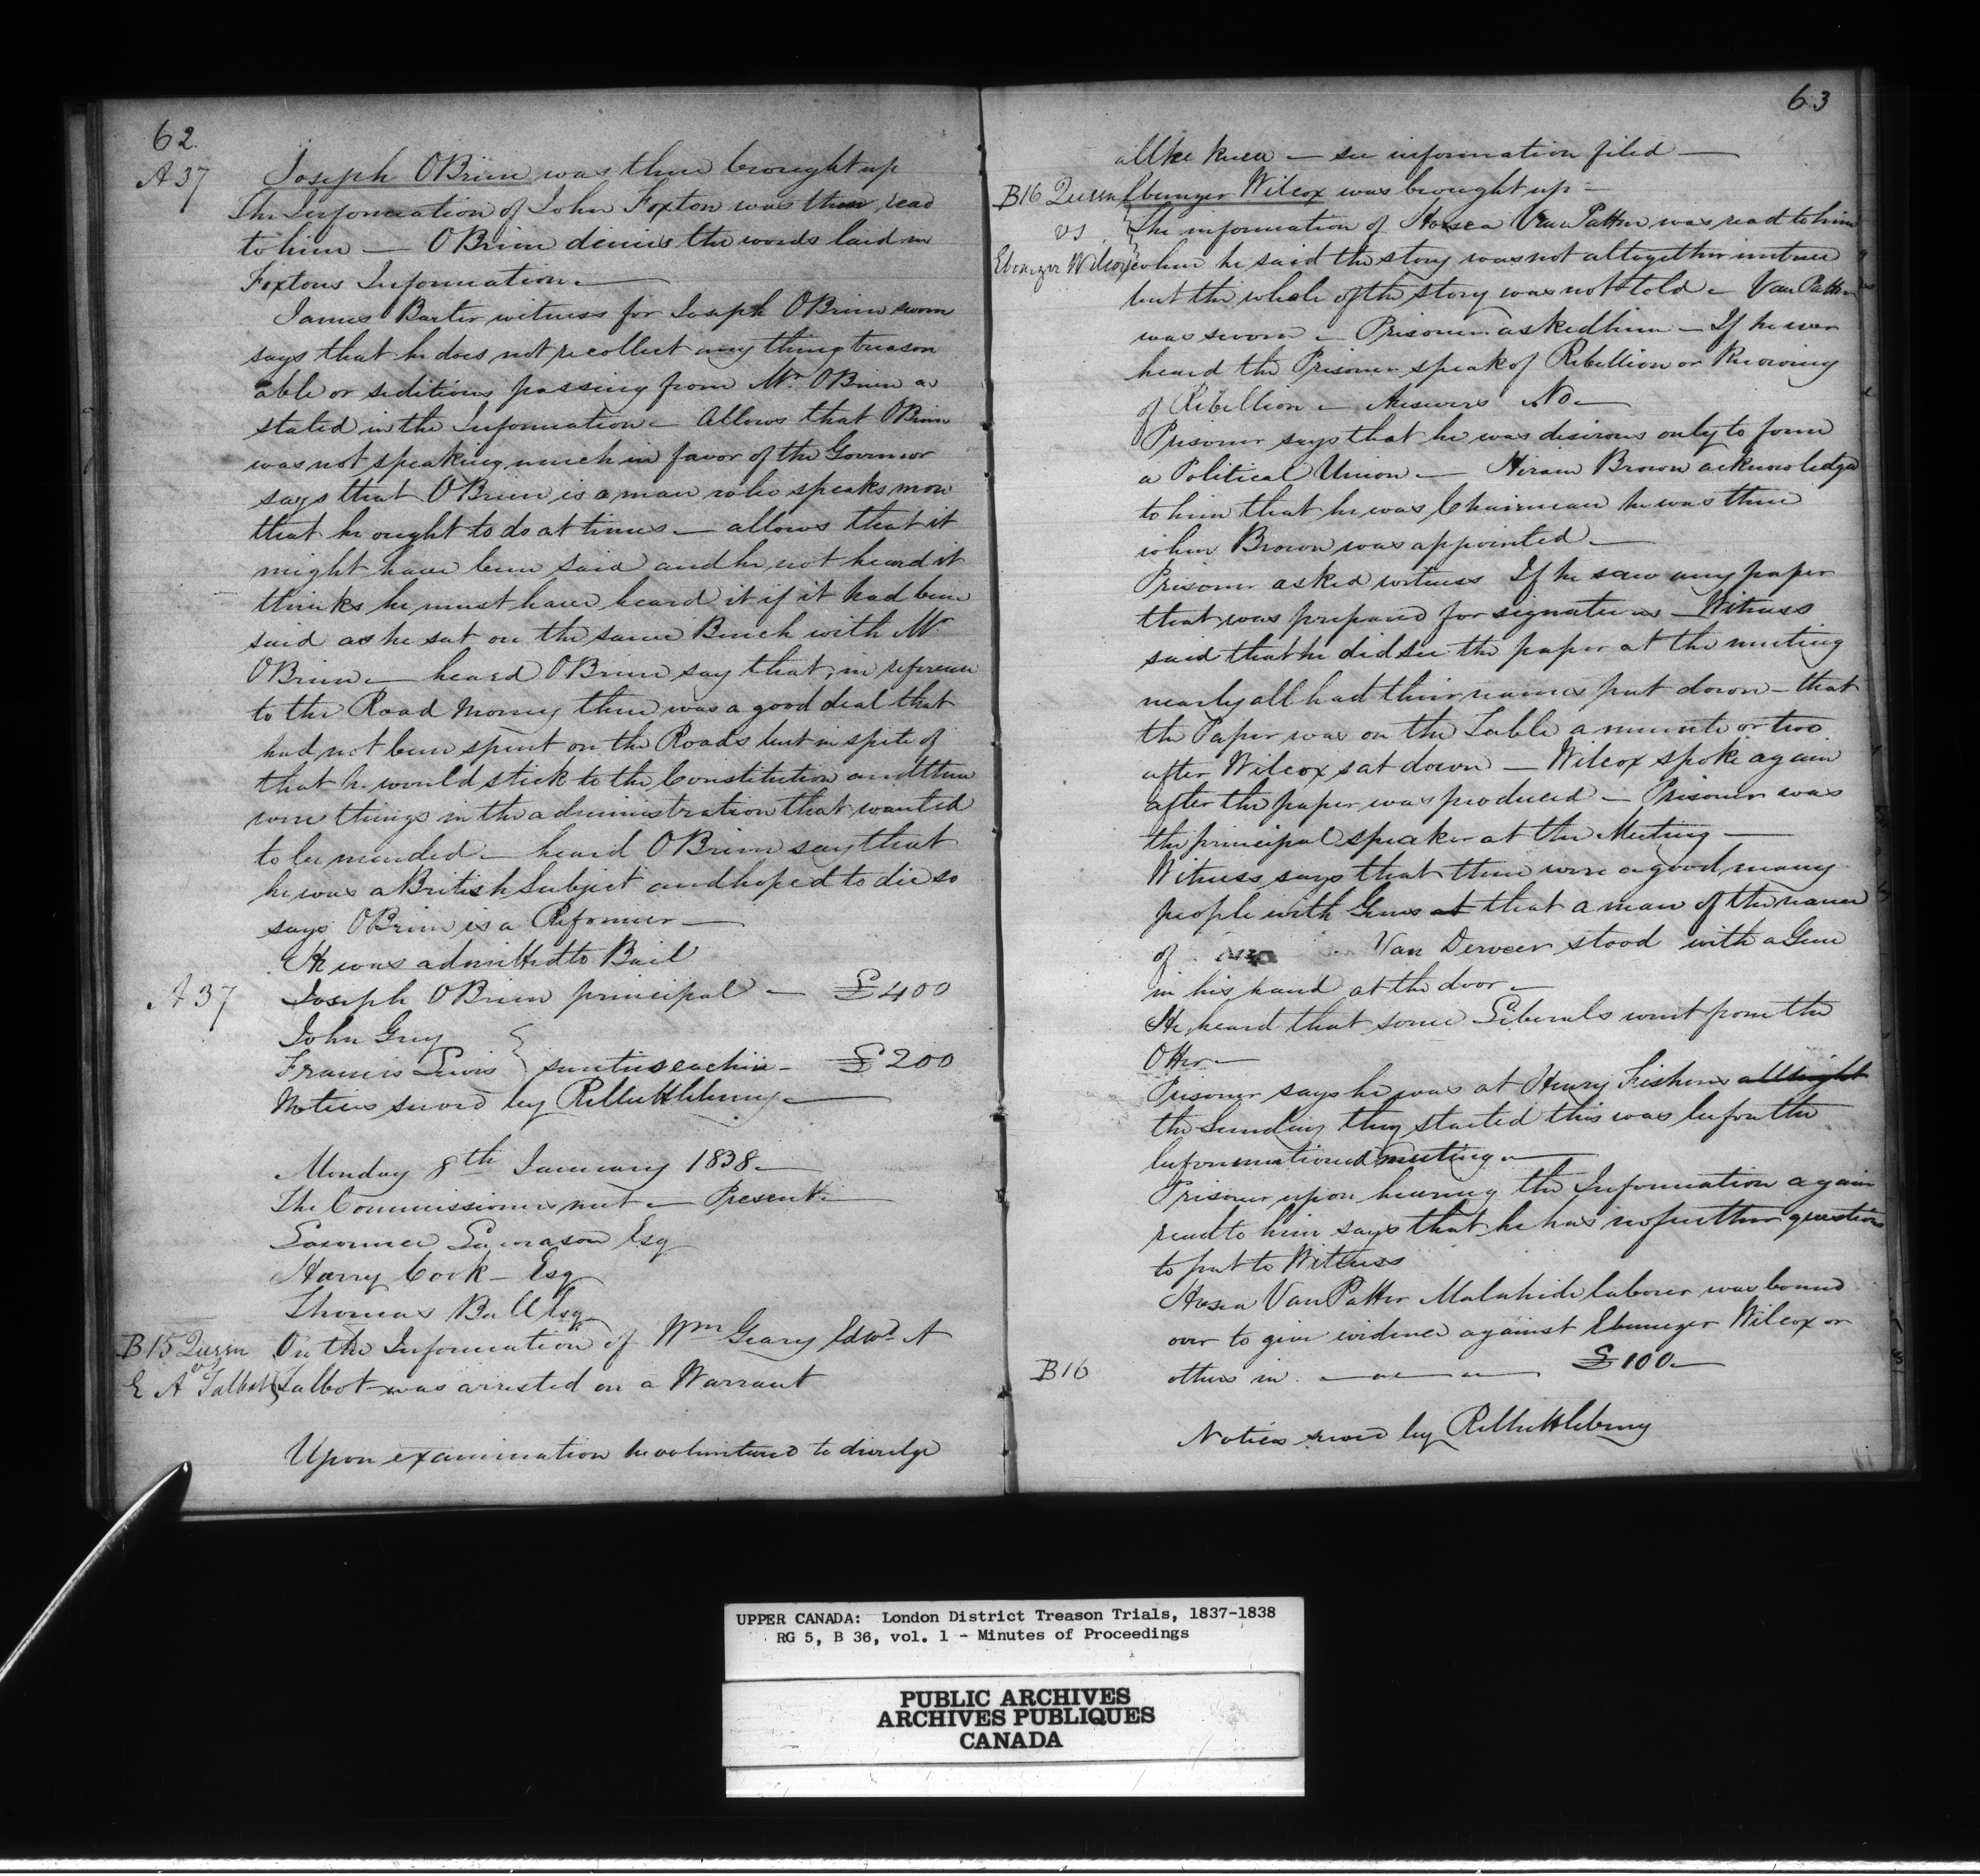 62.
A 37 Joseph OBrien was then brought up
The Information of John Foxton was then read
to him — OBrien denies the words laid in
Foxtons Information.—
James Barter witness for Joseph OBrien sworn
says that he does not recollect any thing treason
able or seditious passing from Mr. OBrien as
stated in the Information — Allows that OBrien
was not speaking much in favor of the Governor
says that OBrien is a man who speaks more
that he ought to do at times — allows that it
might have been said and he not heard it
thinks he must have heard it if it had been
said as he sat on the same Bench with Mr
OBrien — heard OBrien say that, in reference
to the Road Money there was a good deal that
had not been spent on the Roads but in spite of
that he would stick to the Constitution and there
were things in the administration that wanted
to be mended — heard OBrien say that
he was a British Subject and hoped to die so
says OBrien is a Reformer —
He was admitted to Bail
A 37 Joseph OBrien principal — £400
John Grey
Francis Lewis } sureties each in — £200
Notices served by
Monday 8th January 1838 —
The Commissioners met — Present —
Lawrence Lawrason Esq
Harry Cook — Esq
Thomas Ball Esq
B15 Queen On the Information of Wm Geary Edwd A
vs
E A Talbot } Talbot was arrested on a Warrant
Upon examination he volunteered to divulge
63
all he knew — see information filed —
B16 Queen Ebenezer Wilcox was brought up —
vs } The information of Hosea Van Patter was read to him
Ebenezer Wilcox when he said the story was not altogether untrue
but the whole of the story was not told — Van Patter
was sworn — Prisoner asked him — If he ever
heard the Prisoner speak of Rebellion or Knowing
of Rebellion — Answers No —
Prisoner says that he was desirous only to form
a Political Union — Hiram Brown acknowledged
to him that he was Chairman he was there
when Brown was appointed —
Prisoner asked witness If he saw any paper
that was prepared for signatures — Witness
said that he did see the paper at the meeting
nearly all had their names put down — that
the Paper was on the Table a minute or two
after Wilcox sat down — Wilcox spoke again
after the paper was produced — Prisoner was
the principal speaker at the Meeting —
Witness says that there were a good many
people with Guns at that a man of the name
of Van Derveer stood with a Gun
in his hand at the door —
He heard that some Liberals went from the
Otter —
Prisoner says he was at Henry Fishers all night
the Sunday they started this was before the
beforementioned meeting —
Prisoner upon hearing the Information again
read to him says that he has no further questions
to put to Witness
Hosea Van Patter Malahide laborer was bound
over to give evidence against Ebenezer Wilcox or
B16 others in — £100 —
Notices served by
UPPER CANADA: London District Treason Trials, 1837-1838
RG 5, B 36, vol. 1 - Minutes of Proceedings
PUBLIC ARCHIVES
ARCHIVES PUBLIQUES
CANADA